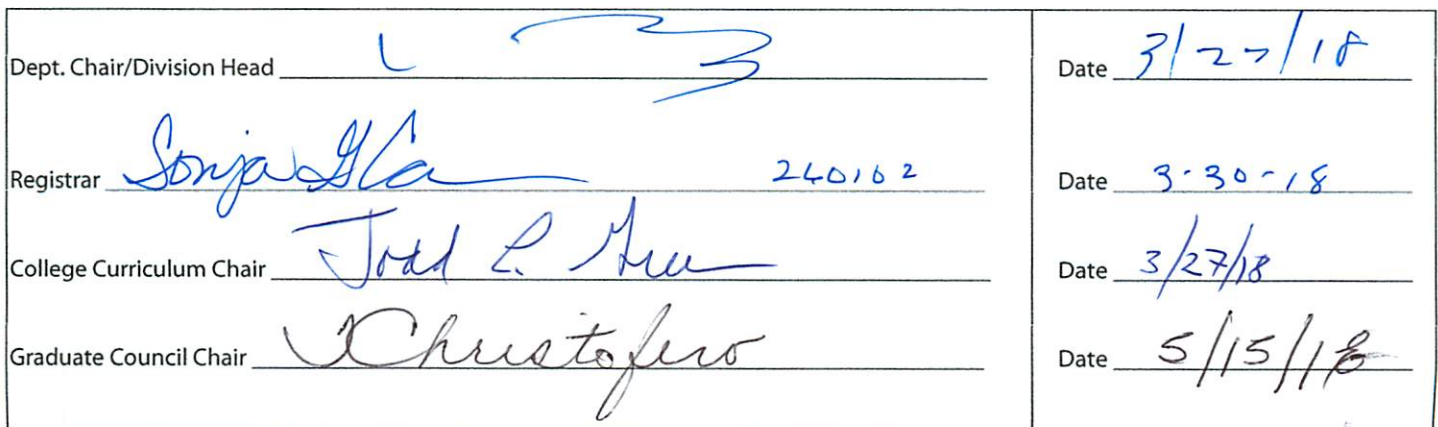 Dept. Chair/Division Head Date 3/27/18
Registrar Sonja 240102 Date 3-30-18
College Curriculum Chair Todd L. Date 3/27/18
Graduate Council Chair Christofero Date 5/15/18